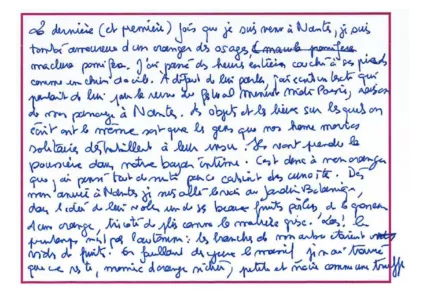 La dernière (et première) fois que je suis venu à Nantes, je suis
tombé amoureux d'un oranger des osages,
maclura pomifera. J'ai passé des heures entières couché à ses pieds
comme un chien docile. A défaut de lui parler, j'ai écrit un texte qui
parlait de lui pour la revue du festival Midi, raison
de mon passage à Nantes. Les objets et les lieux sur lesquels on
écrit ont le même sort que les gens que nos
solitaires à leur insu. Ils vont perdre la
poussière dans notre bazar intime. C'est donc à mon oranger
que j'ai pensé tout de suite pour ce cabinet des curiosités. Dès
mon arrivée à Nantes je suis allé au Jardin Botanique,
dans l'idée de lui voler un de ses beaux fruits pâles, de la grosseur
d'une orange, de plis comme la matière grise. Las! le
printemps n'est pas l'automne: les branches de mon arbre étaient
vides de fruits. En fouillant je n'ai trouvé
que ce reste, momie d'orange, petite et comme une truffe